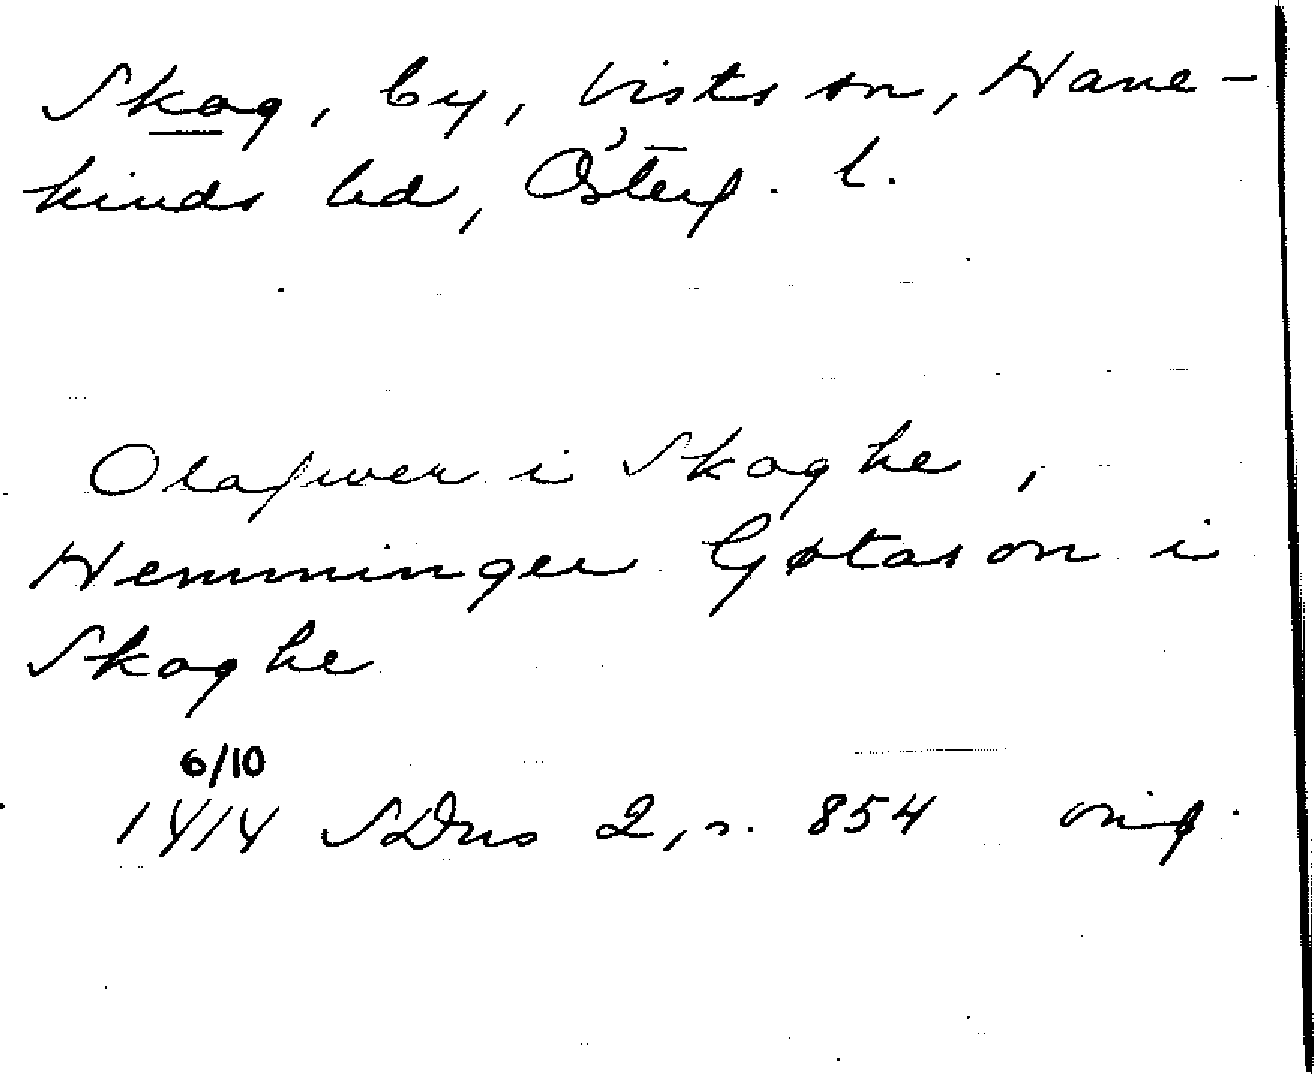 Skog, by, Vists sn, Hane-
kinds hd, Österg. l.
Olafwer i Skoghe,
Hemminger Gøtason i
Skoghe
6/10
1414 SDns 2, s. 854 orig.